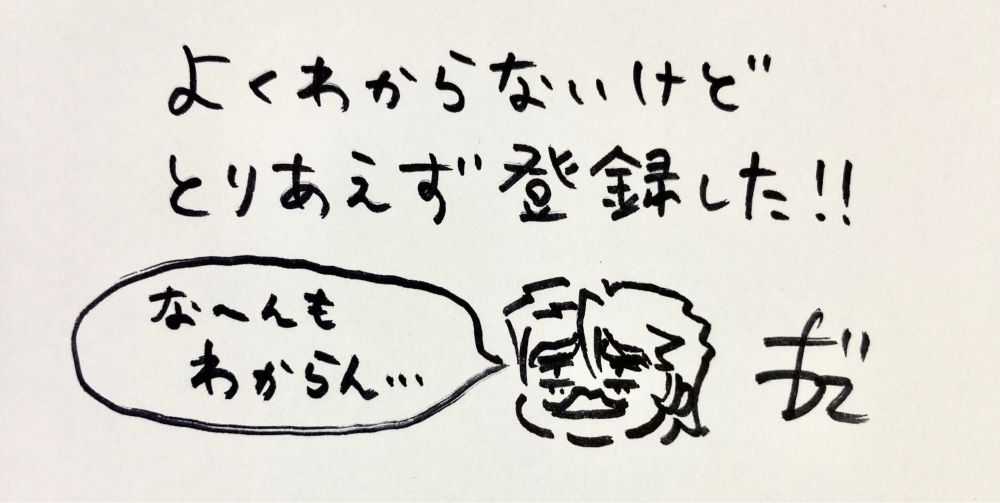 よくわからないけど
とりあえず登録した!!
な〜んも
わからん…